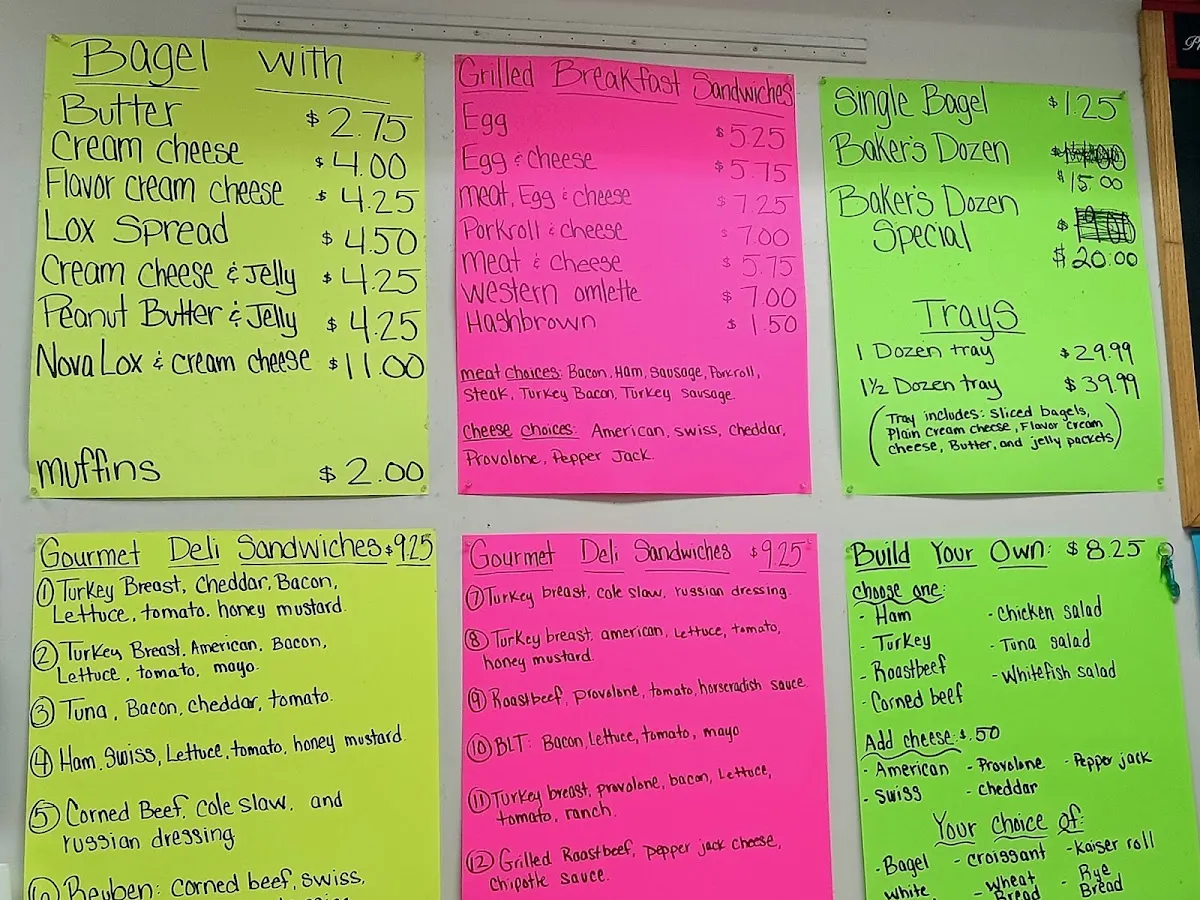 Bagel with
Butter $2.75
Cream cheese $4.00
Flavor cream cheese $4.25
Lox Spread $4.50
Cream cheese & Jelly $4.25
Peanut Butter & Jelly $4.25
Nova Lox & cream cheese $11.00
muffins $2.00
Grilled Breakfast Sandwiches
Egg $5.25
Egg & cheese $5.75
meat, Egg & cheese $7.25
Porkroll & cheese $7.00
meat & cheese $5.75
western omlette $7.00
Hashbrown $1.50
meat choices: Bacon, Ham, Sausage, Porkroll,
Steak, Turkey Bacon, Turkey Sausage.
cheese choices: American, swiss, cheddar,
Provolone, Pepper Jack.
Single Bagel $1.25
Baker's Dozen
$15.00
Baker's Dozen $
Special $20.00
Trays
1 Dozen tray $29.99
1½ Dozen tray $39.99
(Tray includes: Sliced bagels,
Plain Cream cheese, Flavor cream
cheese, Butter, and jelly packets)
Gourmet Deli Sandwiches $9.25
① Turkey Breast, cheddar, Bacon,
Lettuce, tomato, honey mustard.
② Turkey Breast, American, Bacon,
Lettuce, tomato, mayo.
③ Tuna, Bacon, cheddar, tomato.
④ Ham, Swiss, Lettuce, tomato, honey mustard.
⑤ Corned Beef, cole slaw, and
russian dressing
⑥ Reuben: corned beef, swiss,
Gourmet Deli Sandwiches $9.25
⑦ Turkey breast, cole slaw, russian dressing.
⑧ Turkey breast, american, Lettuce, tomato,
honey mustard.
⑨ Roastbeef, provolone, tomato, horseradish sauce.
⑩ BLT: Bacon, Lettuce, tomato, mayo
⑪ Turkey breast, provolone, bacon, Lettuce,
tomato, ranch.
⑫ Grilled Roastbeef, pepper jack cheese,
Chipotle sauce.
Build Your Own: $8.25
choose one:
- Ham - chicken salad
- Turkey - Tuna salad
- Roastbeef - Whitefish salad
- Corned beef
Add cheese: $.50
- American - Provolone - Pepper jack
- Swiss - cheddar
Your Choice of:
- Bagel - croissant - Kaiser roll
White - Wheat - Rye
Bread Bread